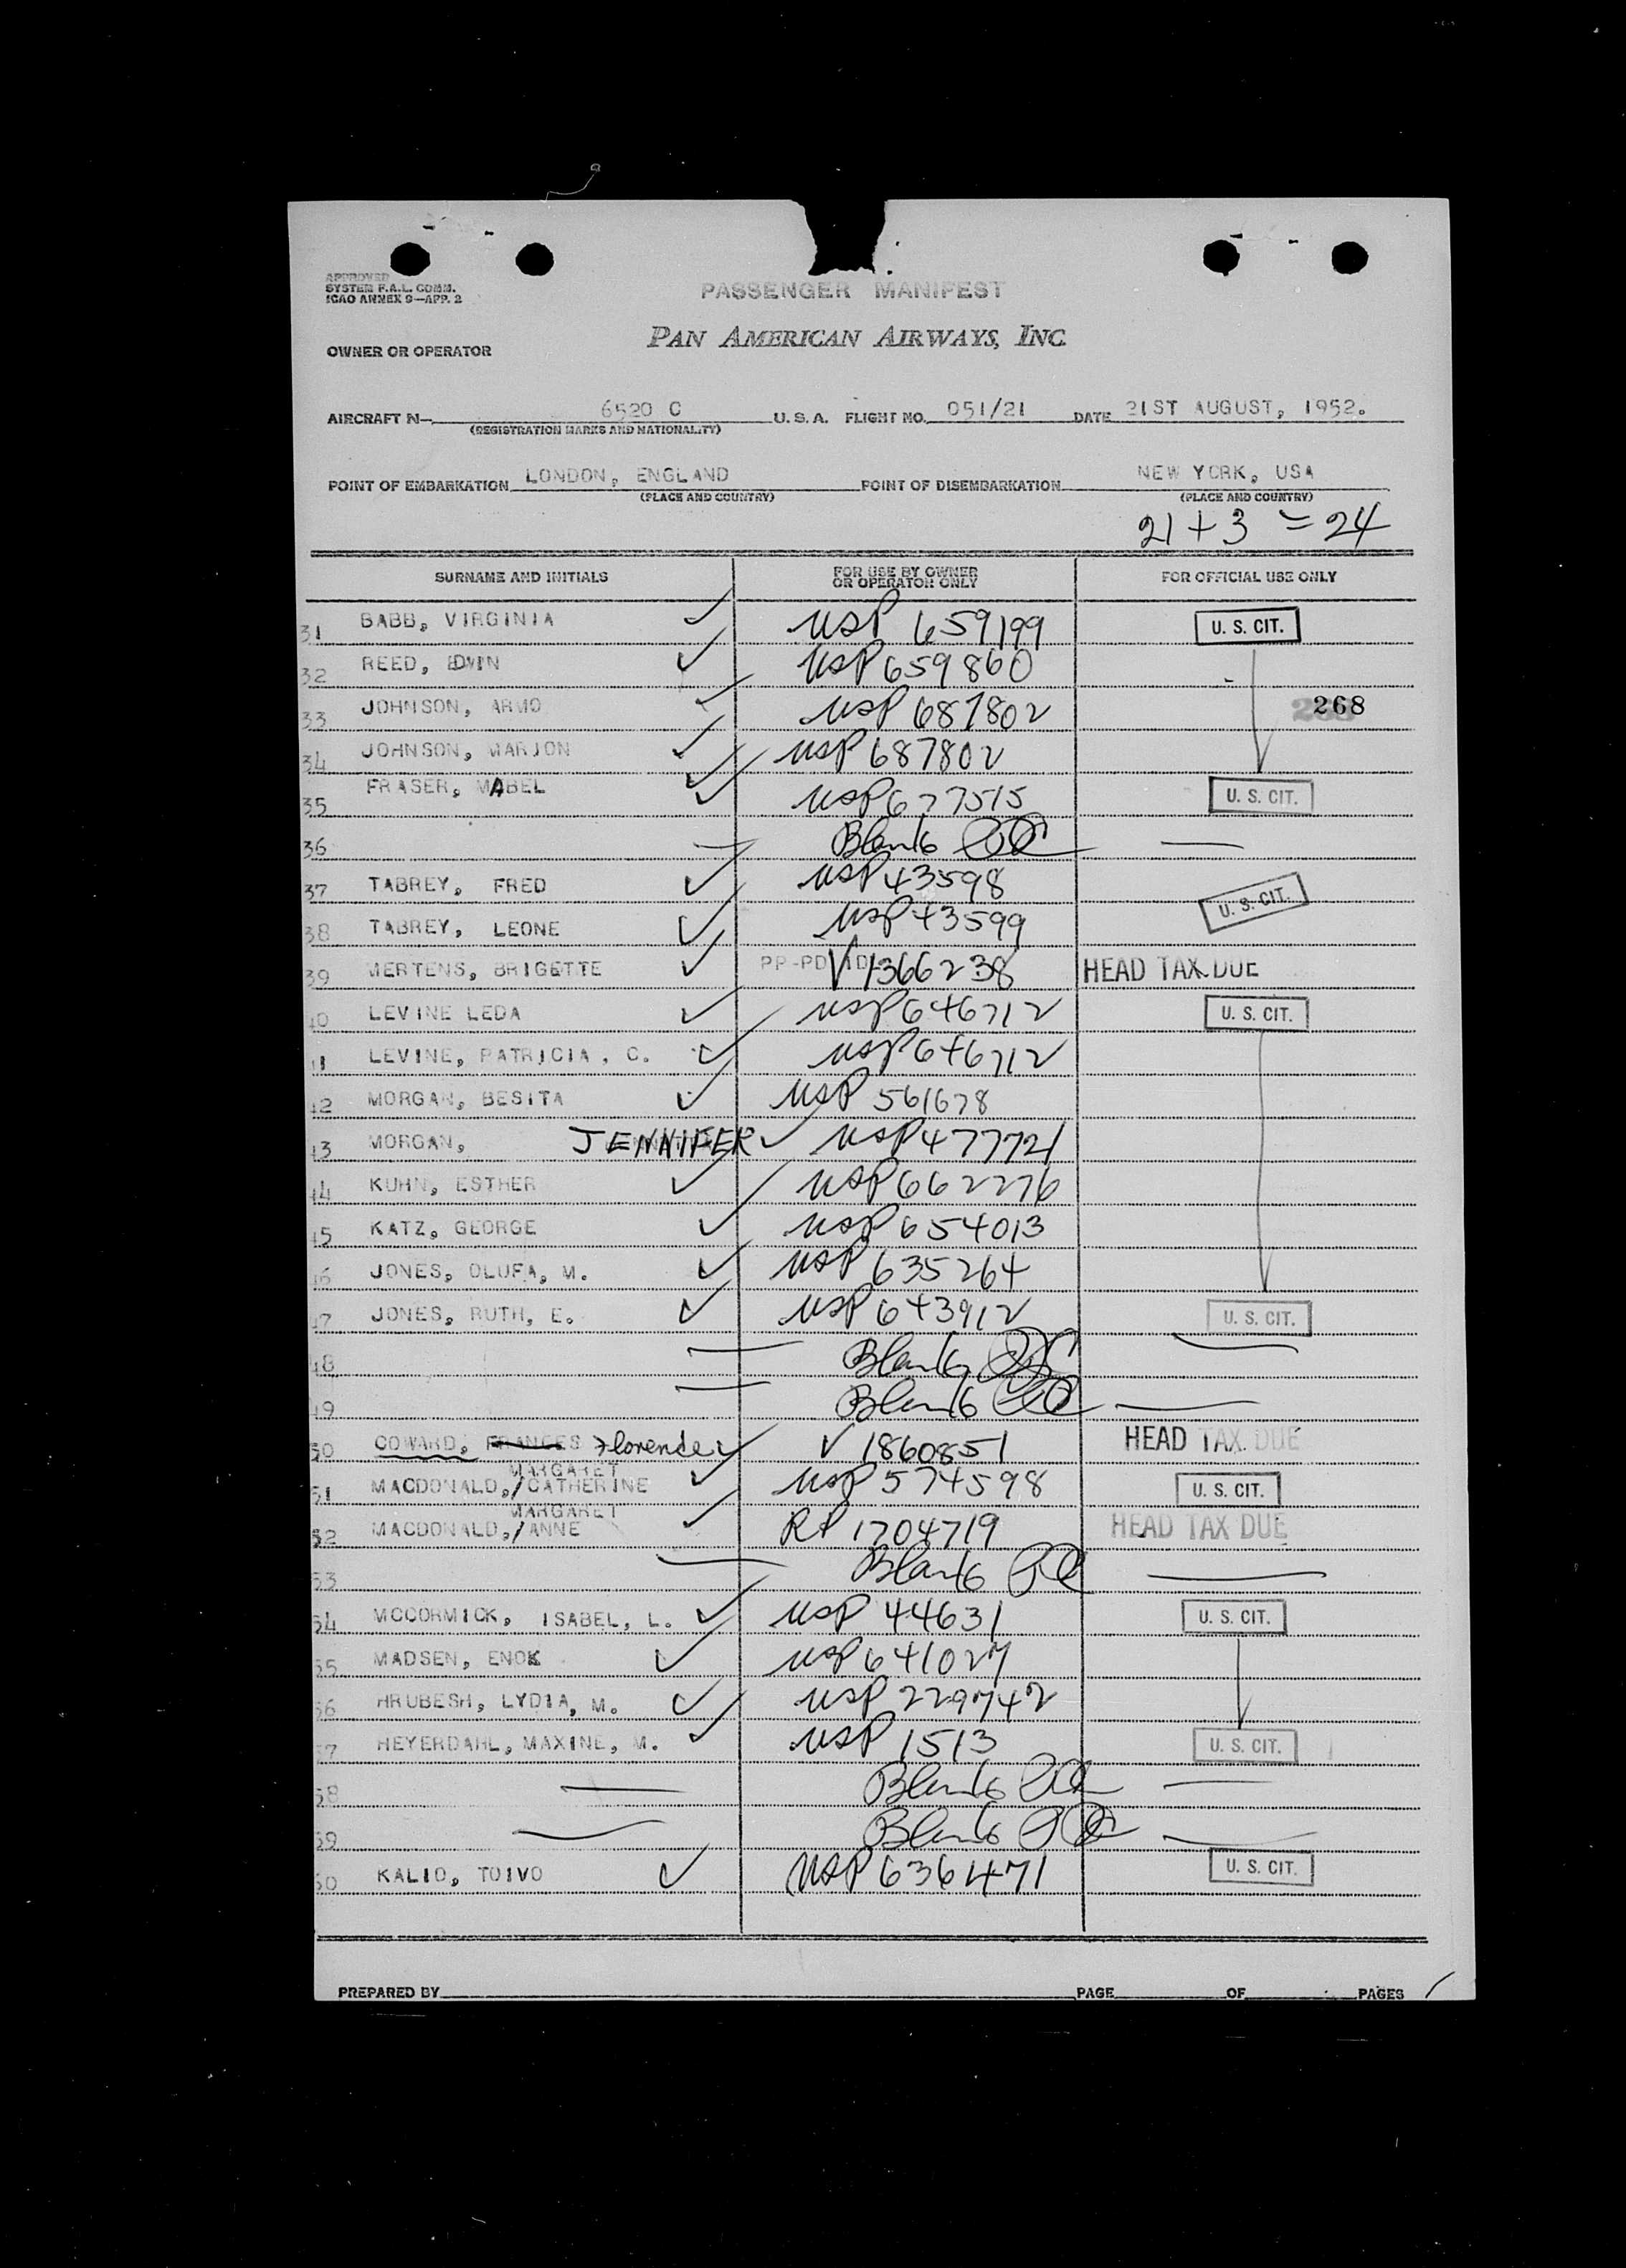 APPROVED
SYSTEM F.A.L. COMM.
ICAO ANNEX 9—APP. 2
PASSENGER MANIFEST
PAN AMERICAN AIRWAYS, INC.
OWNER OR OPERATOR
AIRCRAFT N— 6520 C U. S. A. FLIGHT NO. 051/21 DATE 21ST AUGUST, 1952.
(REGISTRATION MARKS AND NATIONALITY)
POINT OF EMBARKATION LONDON, ENGLAND POINT OF DISEMBARKATION NEW YORK, USA
(PLACE AND COUNTRY) (PLACE AND COUNTRY)
21 + 3 = 24
SURNAME AND INITIALS FOR USE BY OWNER OR OPERATOR ONLY FOR OFFICIAL USE ONLY
31 BABB, VIRGINIA ✓ USP 659199 U. S. CIT.
32 REED, EDWIN ✓ USP 659860
33 JOHNSON, ARMO ✓ USP 687802 268
34 JOHNSON, MARJON ✓ USP 687802
35 FRASER, MABEL ✓ USP 677515 U. S. CIT.
36 — Blank —
37 TABREY, FRED ✓ USP 43598
38 TABREY, LEONE ✓ USP 43599 U. S. CIT.
39 MERTENS, BRIGETTE ✓ PP-PD-ID V 1366238 HEAD TAX DUE
40 LEVINE LEDA ✓ USP 646712 U. S. CIT.
41 LEVINE, PATRICIA, C. ✓ USP 646712
42 MORGAN, BESITA ✓ USP 561678
43 MORGAN, JENNIFER ✓ USP 477721
44 KUHN, ESTHER ✓ USP 662276
45 KATZ, GEORGE ✓ USP 654013
46 JONES, OLUFA, M. ✓ USP 635264
47 JONES, RUTH, E. ✓ USP 643912 U. S. CIT.
48 — Blank —
49 — Blank —
50 COWARD, FRANCES Florence ✓ V 1860851 HEAD TAX DUE
MARGARET
51 MACDONALD,/CATHERINE ✓ USP 574598 U. S. CIT.
MARGARET
52 MACDONALD,/ANNE ✓ RP 1704719 HEAD TAX DUE
53 — Blank —
54 MCCORMICK, ISABEL, L. ✓ USP 44631 U. S. CIT.
55 MADSEN, ENOK ✓ USP 641027
56 HRUBESH, LYDIA, M. ✓ USP 229742
57 HEYERDAHL, MAXINE, M. ✓ USP 1513 U. S. CIT.
58 — Blank —
59 — Blank —
60 KALIO, TOIVO ✓ USP 636471 U. S. CIT.
PREPARED BY PAGE OF PAGES